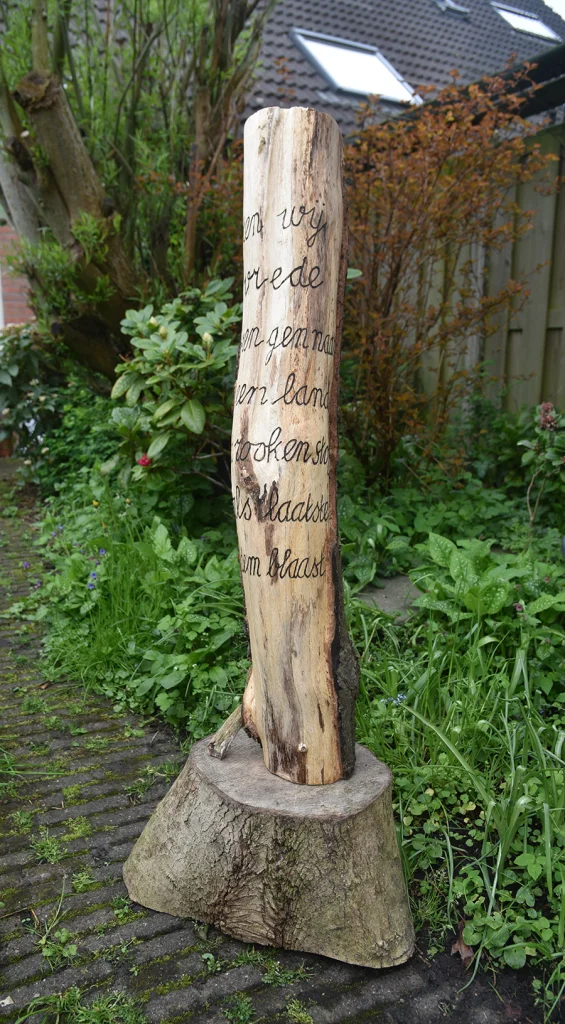 en wij
vrede
en gennaa
en land
rooken sto
ls 't laatste
im blaast